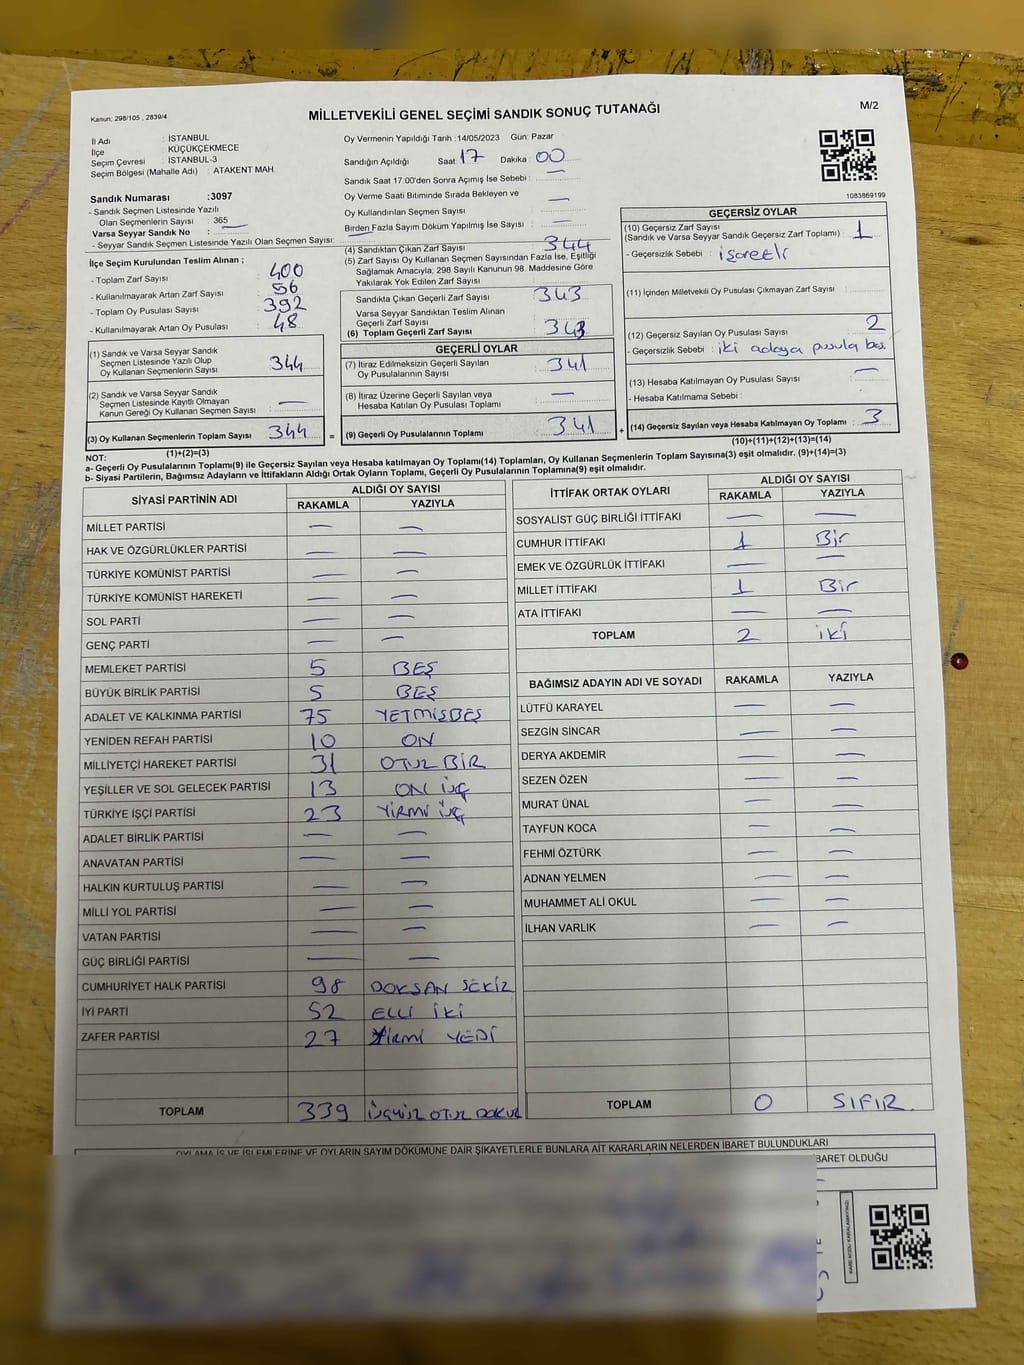 Kanun: 298/105 , 2839/4
MİLLETVEKİLİ GENEL SEÇİMİ SANDIK SONUÇ TUTANAĞI
M/2
İl Adı : İSTANBUL
İlçe : KÜÇÜKÇEKMECE
Seçim Çevresi : İSTANBUL-3
Seçim Bölgesi (Mahalle Adı) : ATAKENT MAH
Oy Vermenin Yapıldığı Tarih :14/05/2023 Gün: Pazar
Sandığın Açıldığı Saat: 17 Dakika : 00
Sandık Saat 17:00'den Sonra Açımış İse Sebebi : —
Oy Verme Saati Bitiminde Sırada Bekleyen ve
Oy Kullandırılan Seçmen Sayısı —
Birden Fazla Sayım Dökum Yapılmış İse Sayısı : —
1083869199
Sandık Numarası :3097
- Sandık Seçmen Listesinde Yazılı
Olan Seçmenlerin Sayısı : 365
Varsa Seyyar Sandık No :
- Seyyar Sandık Seçmen Listesinde Yazılı Olan Seçmen Sayısı:
İlçe Seçim Kurulundan Teslim Alınan ;
- Toplam Zarf Sayısı : 400
- Kullanılmayarak Artan Zarf Sayısı : 56
- Toplam Oy Pusulası Sayısı : 392
- Kullanılmayarak Artan Oy Pusulası : 48
(1) Sandık ve Varsa Seyyar Sandık
Seçmen Listesinde Yazılı Olup
Oy Kullanan Seçmenlerin Sayısı : 344
(2) Sandık ve Varsa Seyyar Sandık
Seçmen Listesinde Kayıtlı Olmayan
Kanun Gereği Oy Kullanan Seçmen Sayısı : —
(3) Oy Kullanan Seçmenlerin Toplam Sayısı : 344
(1)+(2)=(3)
(4) Sandıktan Çıkan Zarf Sayısı : 344
(5) Zarf Sayısı Oy Kullanan Seçmen Sayısından Fazla İse, Eşitliği
Sağlamak Amacıyla; 298 Sayılı Kanunun 98. Maddesine Göre
Yakılarak Yok Edilen Zarf Sayısı :
Sandıkta Çıkan Geçerli Zarf Sayısı : 343
Varsa Seyyar Sandıktan Teslim Alınan
Geçerli Zarf Sayısı :
(6) Toplam Geçerli Zarf Sayısı : 343
GEÇERLİ OYLAR
(7) İtiraz Edilmeksizin Geçerli Sayılan
Oy Pusulalarının Sayısı : 341
(8) İtiraz Üzerine Geçerli Sayılan veya
Hesaba Katılan Oy Pusulası Toplamı : —
= (9) Geçerli Oy Pusulalarının Toplamı : 341
GEÇERSİZ OYLAR
(10) Geçersiz Zarf Sayısı
(Sandık ve Varsa Seyyar Sandık Geçersiz Zarf Toplamı) : 1
- Geçersizlik Sebebi :
(11) İçinden Milletvekili Oy Pusulası Çıkmayan Zarf Sayısı :
(12) Geçersiz Sayılan Oy Pusulası Sayısı : 2
- Geçersizlik Sebebi : iki adaya pusula
(13) Hesaba Katılmayan Oy Pusulası Sayısı : —
- Hesaba Katılmama Sebebi :
+ (14) Geçersiz Sayılan veya Hesaba Katılmayan Oy Toplamı : 3
(10)+(11)+(12)+(13)=(14)
NOT:
a- Geçerli Oy Pusulalarının Toplamı(9) ile Geçersiz Sayılan veya Hesaba katılmayan Oy Toplamı(14) Toplamları, Oy Kullanan Seçmenlerin Toplam Sayısına(3) eşit olmalıdır. (9)+(14)=(3)
b- Siyasi Partilerin, Bağımsız Adayların ve İttifakların Aldığı Ortak Oyların Toplamı, Geçerli Oy Pusulalarının Toplamına(9) eşit olmalıdır.
SİYASİ PARTİNİN ADI
ALDIĞI OY SAYISI
RAKAMLA YAZIYLA
MİLLET PARTİSİ — —
HAK VE ÖZGÜRLÜKLER PARTİSİ — —
TÜRKİYE KOMÜNİST PARTİSİ — —
TÜRKİYE KOMÜNİST HAREKETİ — —
SOL PARTİ — —
GENÇ PARTİ — —
MEMLEKET PARTİSİ 5 BEŞ
BÜYÜK BİRLİK PARTİSİ 5 BEŞ
ADALET VE KALKINMA PARTİSİ 75 YETMİŞBEŞ
YENİDEN REFAH PARTİSİ 10 ON
MİLLİYETÇİ HAREKET PARTİSİ 31 OTUZ BİR
YEŞİLLER VE SOL GELECEK PARTİSİ 13 ON ÜÇ
TÜRKİYE İŞÇİ PARTİSİ 23 YİRMİ ÜÇ
ADALET BİRLİK PARTİSİ — —
ANAVATAN PARTİSİ — —
HALKIN KURTULUŞ PARTİSİ — —
MİLLİ YOL PARTİSİ — —
VATAN PARTİSİ — —
GÜÇ BİRLİĞİ PARTİSİ — —
CUMHURİYET HALK PARTİSİ 98 DOKSAN SEKİZ
İYİ PARTİ 52 ELLİ İKİ
ZAFER PARTİSİ 27 YİRMİ YEDİ
TOPLAM 339 ÜÇYÜZ OTUZ DOKUZ
İTTİFAK ORTAK OYLARI
ALDIĞI OY SAYISI
RAKAMLA YAZIYLA
SOSYALİST GÜÇ BİRLİĞİ İTTİFAKI — —
CUMHUR İTTİFAKI 1 Bir
EMEK VE ÖZGÜRLÜK İTTİFAKI — —
MİLLET İTTİFAKI 1 Bir
ATA İTTİFAKI — —
TOPLAM 2 iki
BAĞIMSIZ ADAYIN ADI VE SOYADI RAKAMLA YAZIYLA
LÜTFÜ KARAYEL — —
SEZGİN SİNCAR — —
DERYA AKDEMİR — —
SEZEN ÖZEN — —
MURAT ÜNAL — —
TAYFUN KOCA — —
FEHMİ ÖZTÜRK — —
ADNAN YELMEN — —
MUHAMMET ALİ OKUL — —
İLHAN VARLIK — —
TOPLAM 0 SIFIR
OYLAMA İŞ VE İŞLEMLERİNE VE OYLARIN SAYIM DÖKÜMÜNE DAİR ŞİKAYETLERLE BUNLARA AİT KARARLARIN NELERDEN İBARET BULUNDUKLARI
BARET OLDUĞU